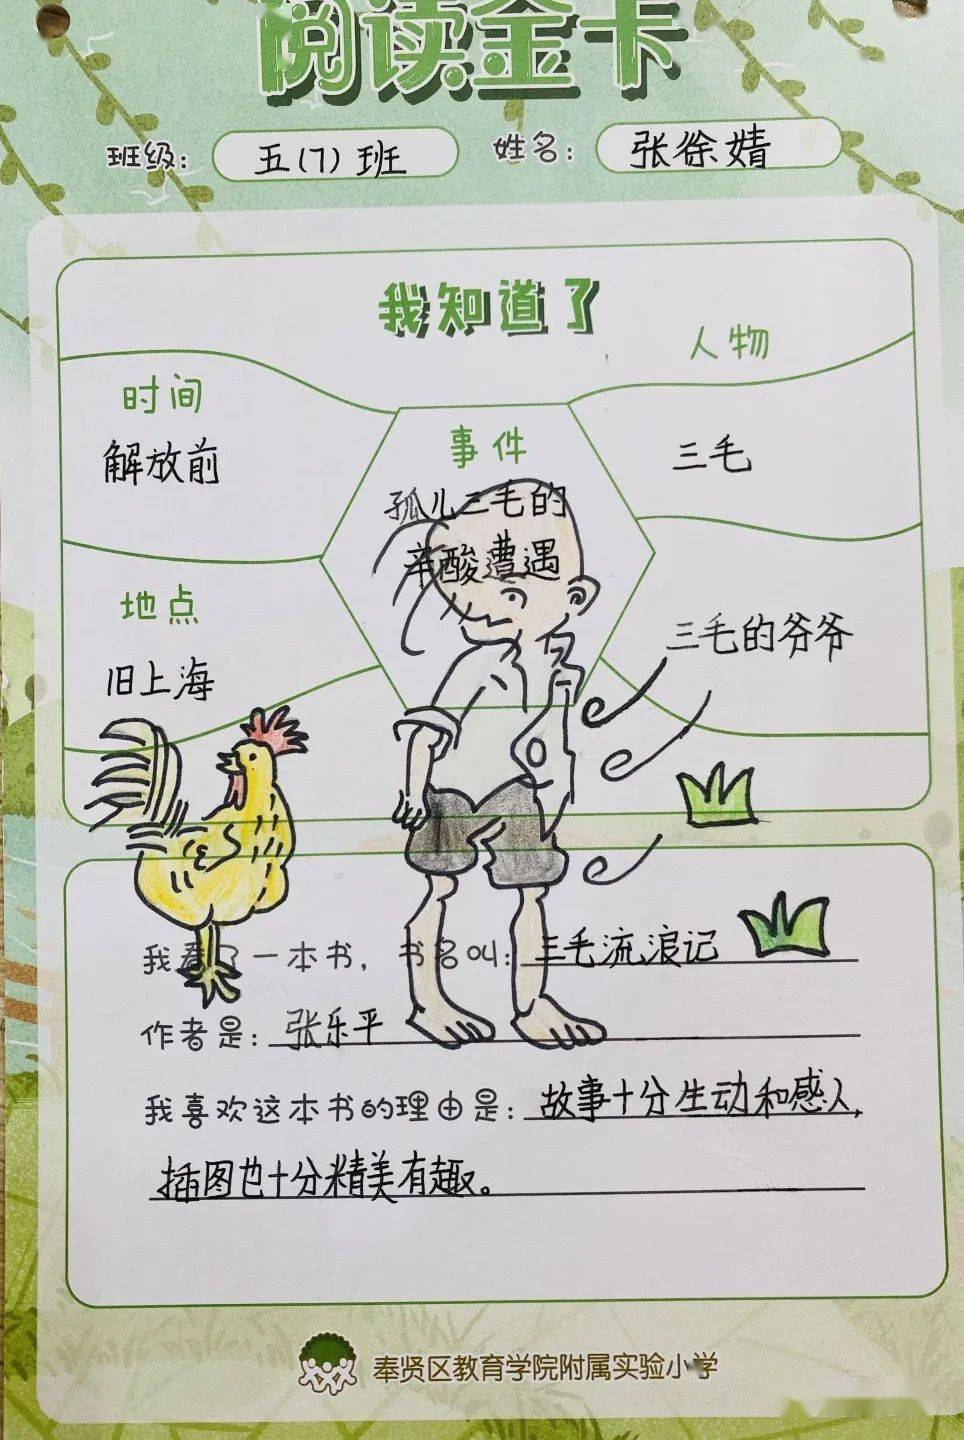 阅读金卡
班级： 五(7)班 姓名： 张徐婧
我知道了
人物
时间
事件
解放前
三毛
孤儿三毛的
辛酸遭遇
地点
三毛的爷爷
旧上海
我看了一本书，书名叫：三毛流浪记
作者是：张乐平
我喜欢这本书的理由是：故事十分生动和感人，
插图也十分精美有趣。
奉贤区教育学院附属实验小学